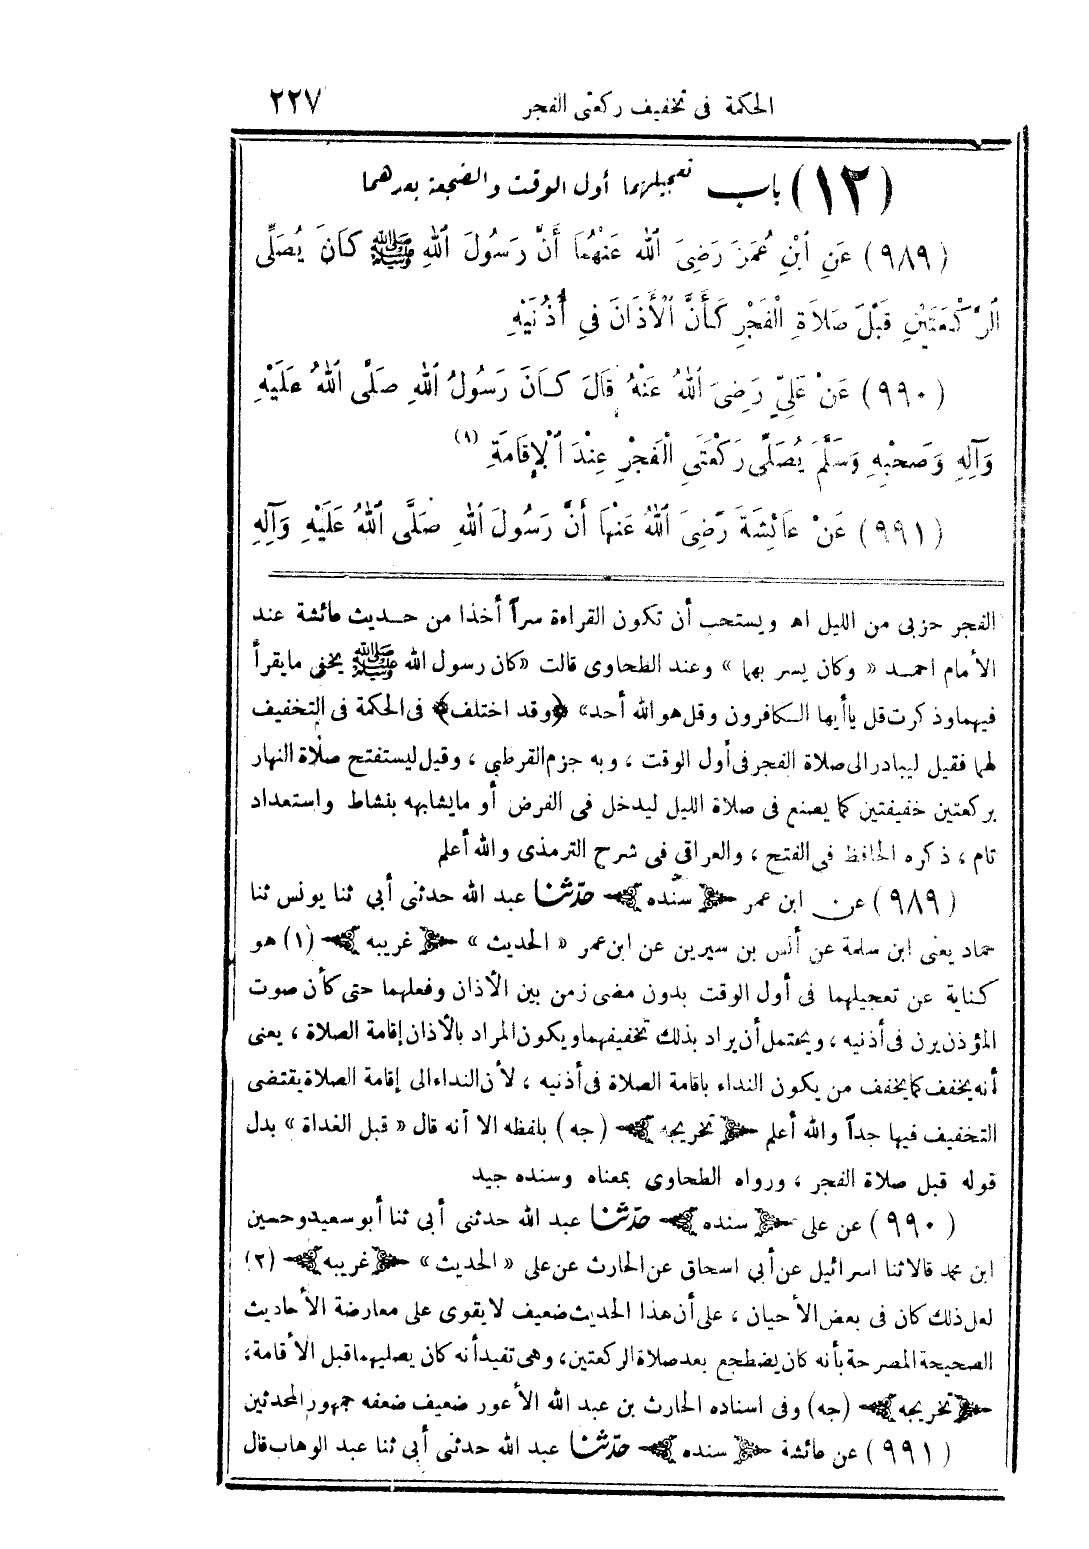 الحكمة فى تخفيف ركعتى الفجر ٢٢٧
(١٢) باب تعجيلهما أول الوقت والضجعة بعدهما
(٩٨٩) عَنِ ٱبْنِ عُمَرَ رَضِىَ ٱللهُ عَنْهُمَا أَنَّ رَسُولَ ٱللهِ ﷺ كَانَ يُصَلِّى
ٱلرَّكْعَتَيْنِ قَبْلَ صَلَاةِ ٱلْفَجْرِ كَأَنَّ ٱلْأَذَانَ فِى أُذُنَيْهِ
(٩٩٠) عَنْ عَلِىٍّ رَضِىَ ٱللهُ عَنْهُ قَالَ كَانَ رَسُولُ ٱللهِ صَلَّى ٱللهُ عَلَيْهِ
وَآلِهِ وَصَحْبِهِ وَسَلَّمَ يُصَلِّى رَكْعَتَىِ ٱلْفَجْرِ عِنْدَ ٱلْإِقَامَةِ (١)
(٩٩١) عَنْ عَائِشَةَ رَضِىَ ٱللهُ عَنْهَا أَنَّ رَسُولَ ٱللهِ صَلَّى ٱللهُ عَلَيْهِ وَآلِهِ
الفجر حزبى من الليل اھ ويستحب أن تكون القراءة سراً أخذا من حديث عائشة عند
الأمام احمد « وكان يسر بهما » وعند الطحاوى قالت «كان رسول الله ﷺ يخفى مايقرأ
فيهماوذكرت قل ياأيها الكافرون وقل هو الله أحد» ﴿وقد اختلف﴾ فى الحكمة فى التخفيف
لهما فقيل ليبادر الى صلاة الفجر فى أول الوقت ، وبه جزم القرطبي ، وقيل ليستفتح صلاة النهار
بركعتين خفيفتين كما يصنع فى صلاة الليل ليدخل فى الفرض أو مايشابهه بنشاط واستعداد
تام ، ذكره الحافظ فى الفتح ، والعراقى فى شرح الترمذى والله أعلم
(٩٨٩) عن ابن عمر ﴿ سنده ﴾ حدّثنا عبد الله حدثنى أبي ثنا يونس ثنا
حماد يعنى ابن سلمة عن أنس بن سيرين عن ابن عمر « الحديث » ﴿ غريبه ﴾ (١) هو
كناية عن تعجيلهما فى أول الوقت بدون مضى زمن بين الأذان وفعلهما حتى كأن صوت
المؤذن يرن فى أذنيه ، ويحتمل أن يراد بذلك تخفيفهما ويكون المراد بالأذان إقامة الصلاة ، يعنى
أنه يخفف كما يخفف من يكون النداء باقامة الصلاة فى أذنيه ، لأن النداء الى إقامة الصلاة يقتضى
التخفيف فيها جداً والله أعلم ﴿ تخريجه ﴾ (جه) بلفظه الا أنه قال « قبل الغداة » بدل
قوله قبل صلاة الفجر ، ورواه الطحاوى بمعناه وسنده جيد
(٩٩٠) عن على ﴿ سنده ﴾ حدّثنا عبد الله حدثنى أبي ثنا أبو سعيد وحسين
ابن محمد قالا ثنا اسرائيل عن أبي اسحاق عن الحارث عن على « الحديث » ﴿ غريبه ﴾ (٢)
لعل ذلك كان فى بعض الأحيان ، على أن هذا الحديث ضعيف لا يقوى على معارضة الأحاديث
الصحيحة المصرحة بأنه كان يضطجع بعد صلاة الركعتين، وهى تفيد أنه كان يصليهما قبل الأقامة،
﴿ تخريجه ﴾ (جه) وفى اسناده الحارث بن عبد الله الأعور ضعيف ضعفه جمهور المحدثين
(٩٩١) عن عائشة ﴿ سنده ﴾ حدّثنا عبد الله حدثنى أبي ثنا عبد الوهاب قال